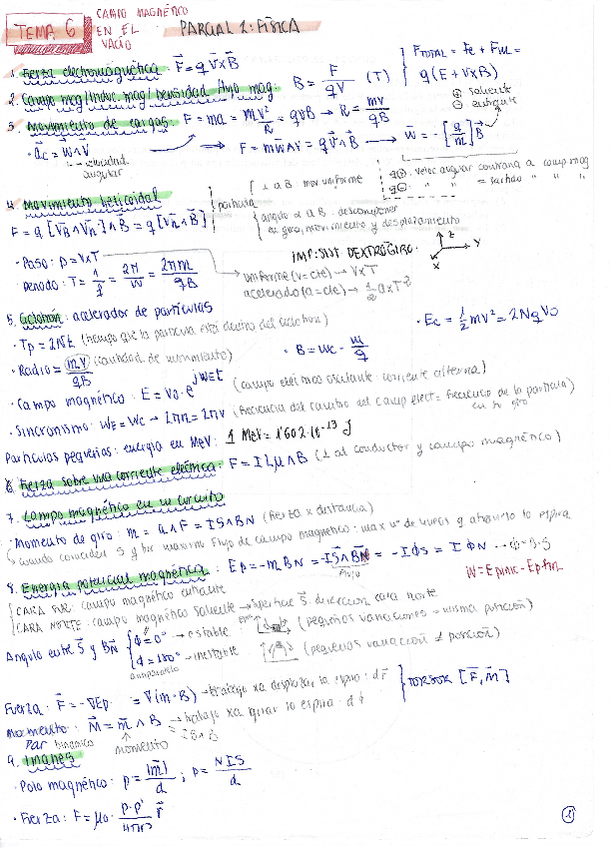 TEMA 6 CAMPO MAGNÉTICO EN EL VACÍO
PARCIAL 1: FÍSICA
1. Fuerza electromagnética: F = q V x B
F TOTAL = Fe + Fm = q(E + V x B)
2. Campo mag/Induc. mag/Densidad flujo mag: B = F / qV (T)
⊕ saliente
⊖ entrante
3. Movimiento de cargas: F = ma = m V² / R = qVB → R = mv / qB
· ac = W ∧ V → F = m W ∧ V = q V ∧ B → W = - [q/m] B
velocidad angular
q⊕: veloc angular contraria a camp mag
q⊖: " " = sentido " "
4. Movimiento helicoidal
partícula
⊥ a B: mov uniforme
ángulo α a B: descomponer en giro, movimiento y desplazamiento
F = q [VB ∧ Vn] ∧ B = q [Vn ∧ B]
· Paso: p = V x T
IMP: SIST DEXTRÓGIRO.
Z Y X
· Periodo: T = 1/f = 2π/W = 2πm/qB
uniforme (v = cte) → V x T
acelerado (a = cte) → 1/2 a x T²
5. Ciclotrón: acelerador de partículas
· Tp = 2Nt (tiempo que la partícula está dentro del ciclotrón)
· Ec = 1/2 mv² = 2NqV0
· Radio = mv / qB (cantidad de movimiento)
· B = Wc · m/q
· Campo magnético: E = V0 · e^jWEt (campo eléctrico oscilante: corriente alterna)
· Sincronismo: WE = Wc → 2πn = 2πν (frecuencia del cambio del camp elect = frecuencia de la partícula) en su giro
Partículas pequeñas: energía en MeV: 1 MeV = 1'602·10⁻¹³ J
6. Fuerza sobre una corriente eléctrica: F = I L μ ∧ B (⊥ al conductor y campo magnético)
7. Campo magnético en un circuito
· Momento de giro: m = a ∧ F = I S ∧ B N (fuerza x distancia)
cuando coinciden S y B máximo flujo de campo magnético: max nº de líneas q atraviesa la espira
8. Energía potencial magnética: Ep = -m B N = -I S ∧ B N = -I ϕ S = I ϕ N
Flujo
W = Ep inic - Ep fin
CARA SUR: campo magnético entrante
CARA NORTE: campo magnético saliente → superficie S: dirección cara norte
Ángulo entre S y BN
ϕ = 0° → estable (pequeñas variaciones = misma posición)
ϕ = 180° → inestable (pequeñas variación ≠ posición)
antiparalelo
Fuerza: F = -∇Ep = ∇(m·B) → trabajo xa desplazar la espira: dF
TORSOR [F, M]
Momento: M = m ∧ B → trabajo xa girar la espira: dϕ
Par dinámico
momento
= I S ∧ B
9. Imanes
· Polo magnético: p = |m| / d ; p = NIS / d
· Fuerza: F = μ0 · p·p' / 4πr² r
1